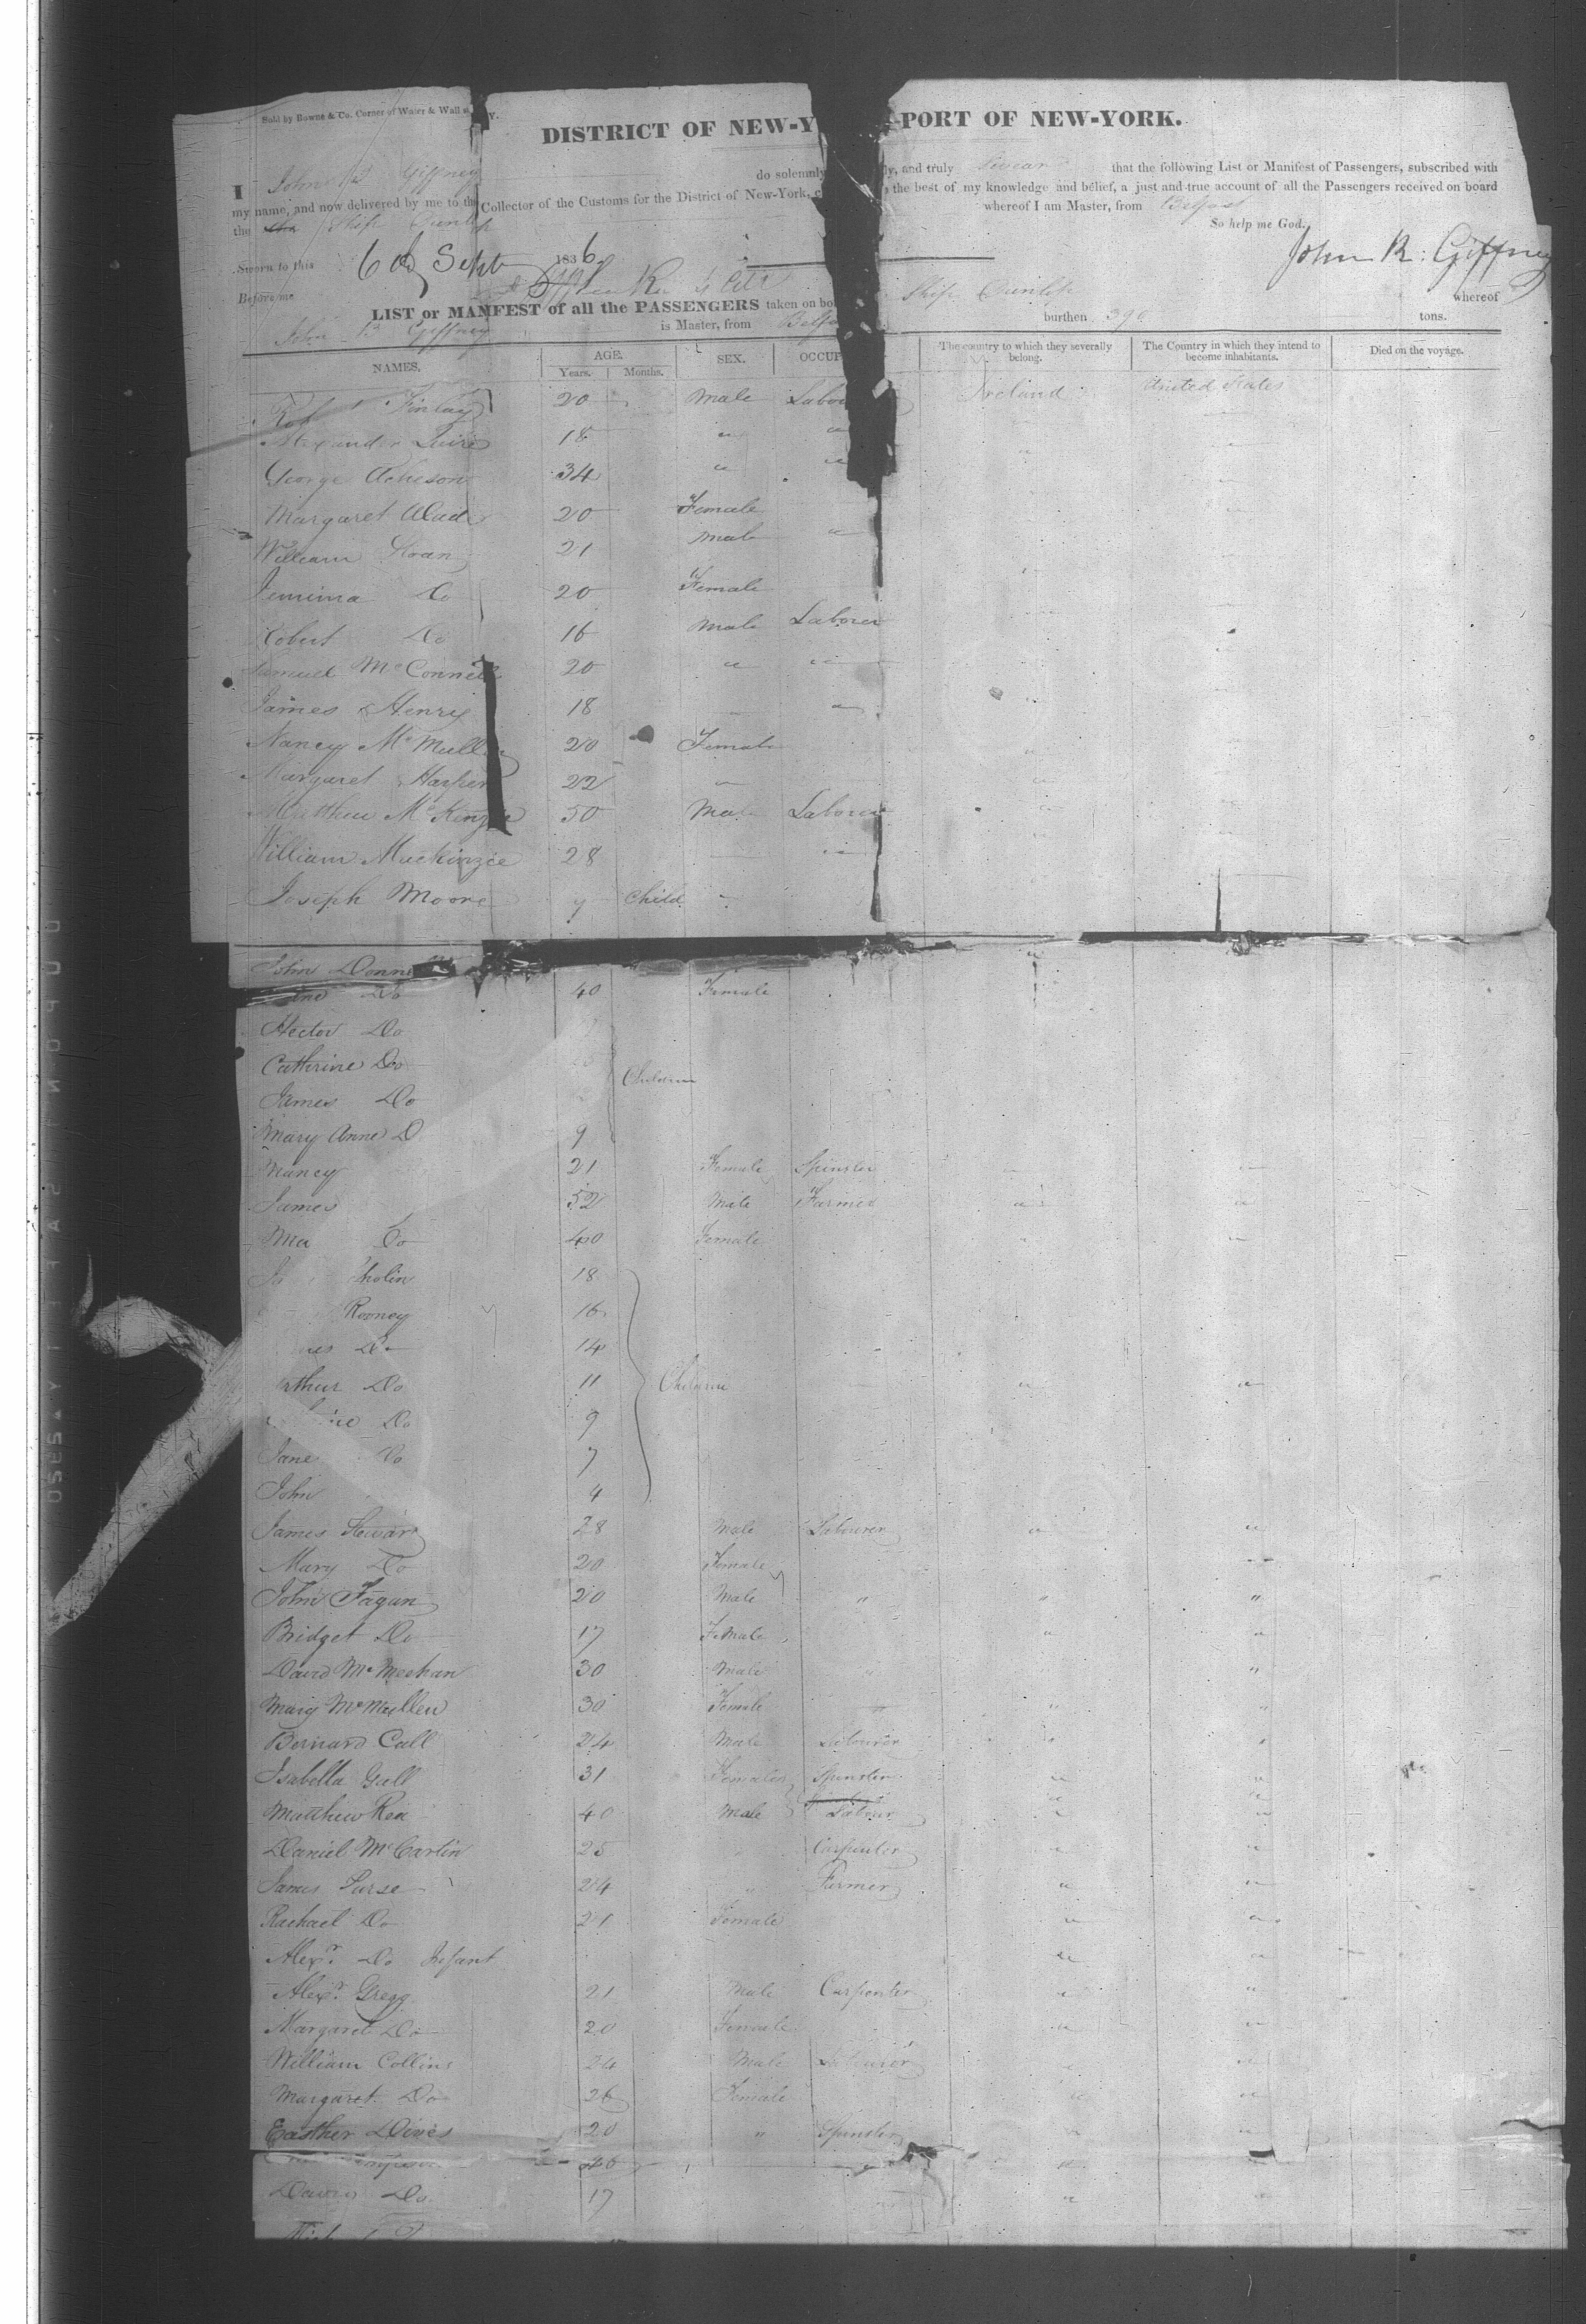 Sold by Bowne & Co. Corner of Water & Wall st. N.Y.
DISTRICT OF NEW-Y PORT OF NEW-YORK.
I John Giffney do solemnly ly, and truly Swear that the following List or Manifest of Passengers, subscribed with
my name, and now delivered by me to the Collector of the Customs for the District of New-York, the best of my knowledge and belief, a just and true account of all the Passengers received on board
the Ship Dunlop whereof I am Master, from Belfast
So help me God.
Sworn to this 6 of Sept 1836. John R: Giffney
Before me
LIST or MANIFEST of all the PASSENGERS taken on bo Ship Dunlop whereof
John Giffney is Master, from Belfa burthen 396 tons.
NAMES. AGE. Years. Months. SEX. OCCUP The country to which they severally belong. The Country in which they intend to become inhabitants. Died on the voyage.
Rob Finlay 20 Male Labou Ireland United States
Alexander 18 " "
George Acheson 34 " "
Margaret 20 Female
William Sloan 21 Male "
Jemima Do 20 Female
Robert Do 16 Male Laborer
Samuel McConnell 20 " "
James Henry 18 "
Nancy McMullen 20 Female "
Margaret Harper 22 " "
Matthew McKenzie 50 Male Laborer "
William Mackinzie 28 "
Joseph Moore Child
John Donne
Do 40 Female
Hector Do
Catherine Do Children
James Do
Mary Anne D 9
Nancy 21 Female Spinster
James 52 Male Farmer " "
Ma Do 40 Female "
18
Rooney 16
Do 14
rthur Do 11 Children " "
Do 9
Jane Do 7
John 4
James Stewart 28 Male Labourer " "
Mary Do 20 Female "
John Fagan 20 Male " " "
Bridget Do 17 Female " "
David McMeekan 30 Male " "
Mary McMullen 30 Female " " "
Bernard Call 24 Male Labourer " "
Isabella Gall 31 Female Spinster " "
Matthew Rea 40 Male Labour " "
Daniel McCartin 25 " Carpenter " "
James Purse 24 " Farmer " "
Rachael Do 21 Female " "
Alexr. Do Infant " "
Alexr. Gregg 21 Male Carpenter " "
Margaret Do 20 Female " "
William Collins 24 Male Labourer " "
Margaret Do 26 Female " "
Easther Dives 20 " Spinster " "
40 "
David Do 17 " "